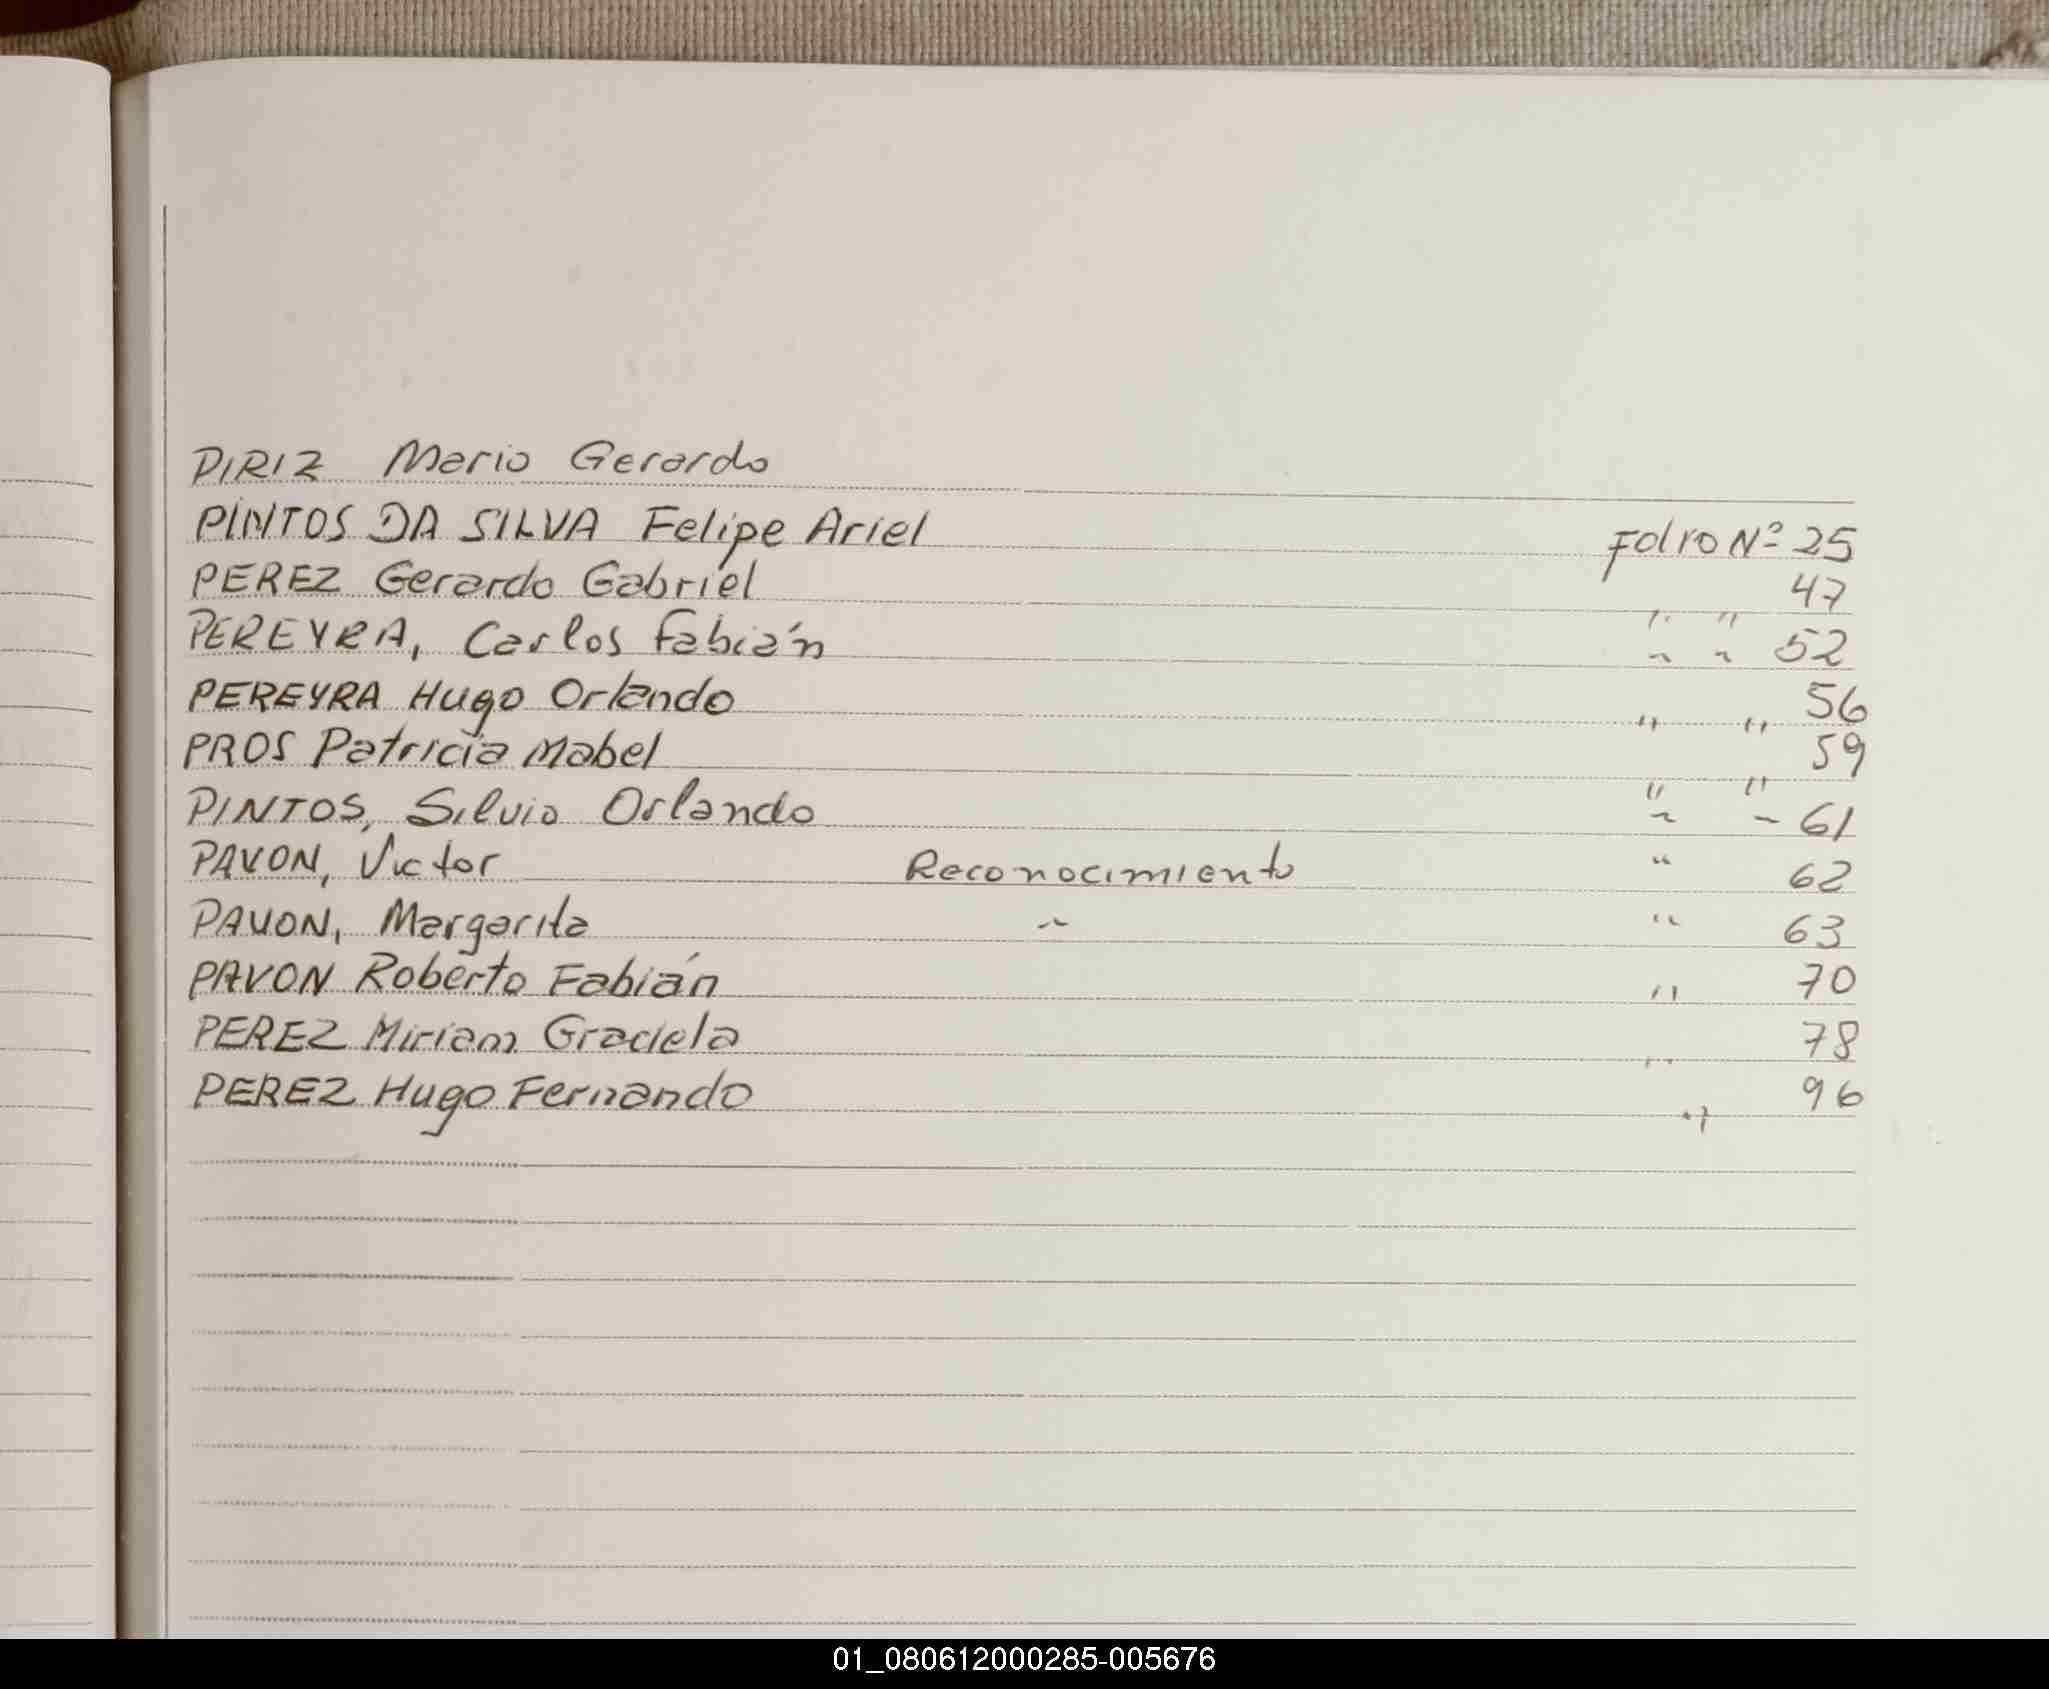 PIRIZ Mario Gerardo
PINTOS DA SILVA Felipe Ariel Folio Nº 25
PEREZ Gerardo Gabriel " " 47
PEREYRA, Carlos Fabián " " 52
PEREYRA Hugo Orlando " " 56
PROS Patricia Mabel " " 59
PINTOS, Silvio Orlando " " 61
PAVON, Victor Reconocimiento " 62
PAVON, Margarita " " 63
PAVON Roberto Fabián " 70
PEREZ Miriam Graciela " 78
PEREZ Hugo Fernando " 96
01_080612000285-005676